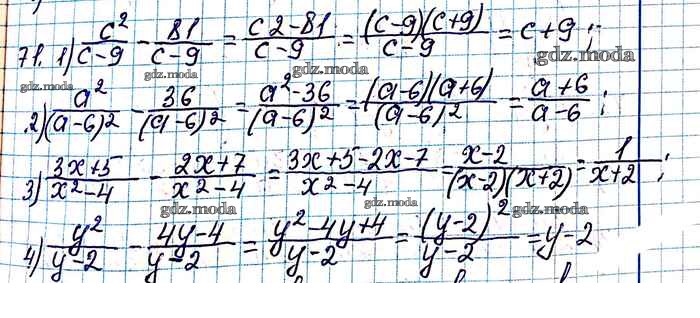 71. 1) c²/(c-9) - 81/(c-9) = (c2-81)/(c-9) = (c-9)(c+9)/(c-9) = c+9;
gdz.moda gdz.moda gdz.moda
2) a²/(a-6)² - 36/(a-6)² = (a²-36)/(a-6)² = (a-6)(a+6)/(a-6)² = (a+6)/(a-6);
gdz.moda gdz.moda gdz.moda
3) (3x+5)/(x²-4) - (2x+7)/(x²-4) = (3x+5-2x-7)/(x²-4) = (x-2)/((x-2)(x+2)) = 1/(x+2);
gdz.moda gdz.moda gdz.moda
4) y²/(y-2) - (4y-4)/(y-2) = (y²-4y+4)/(y-2) = (y-2)²/(y-2) = y-2